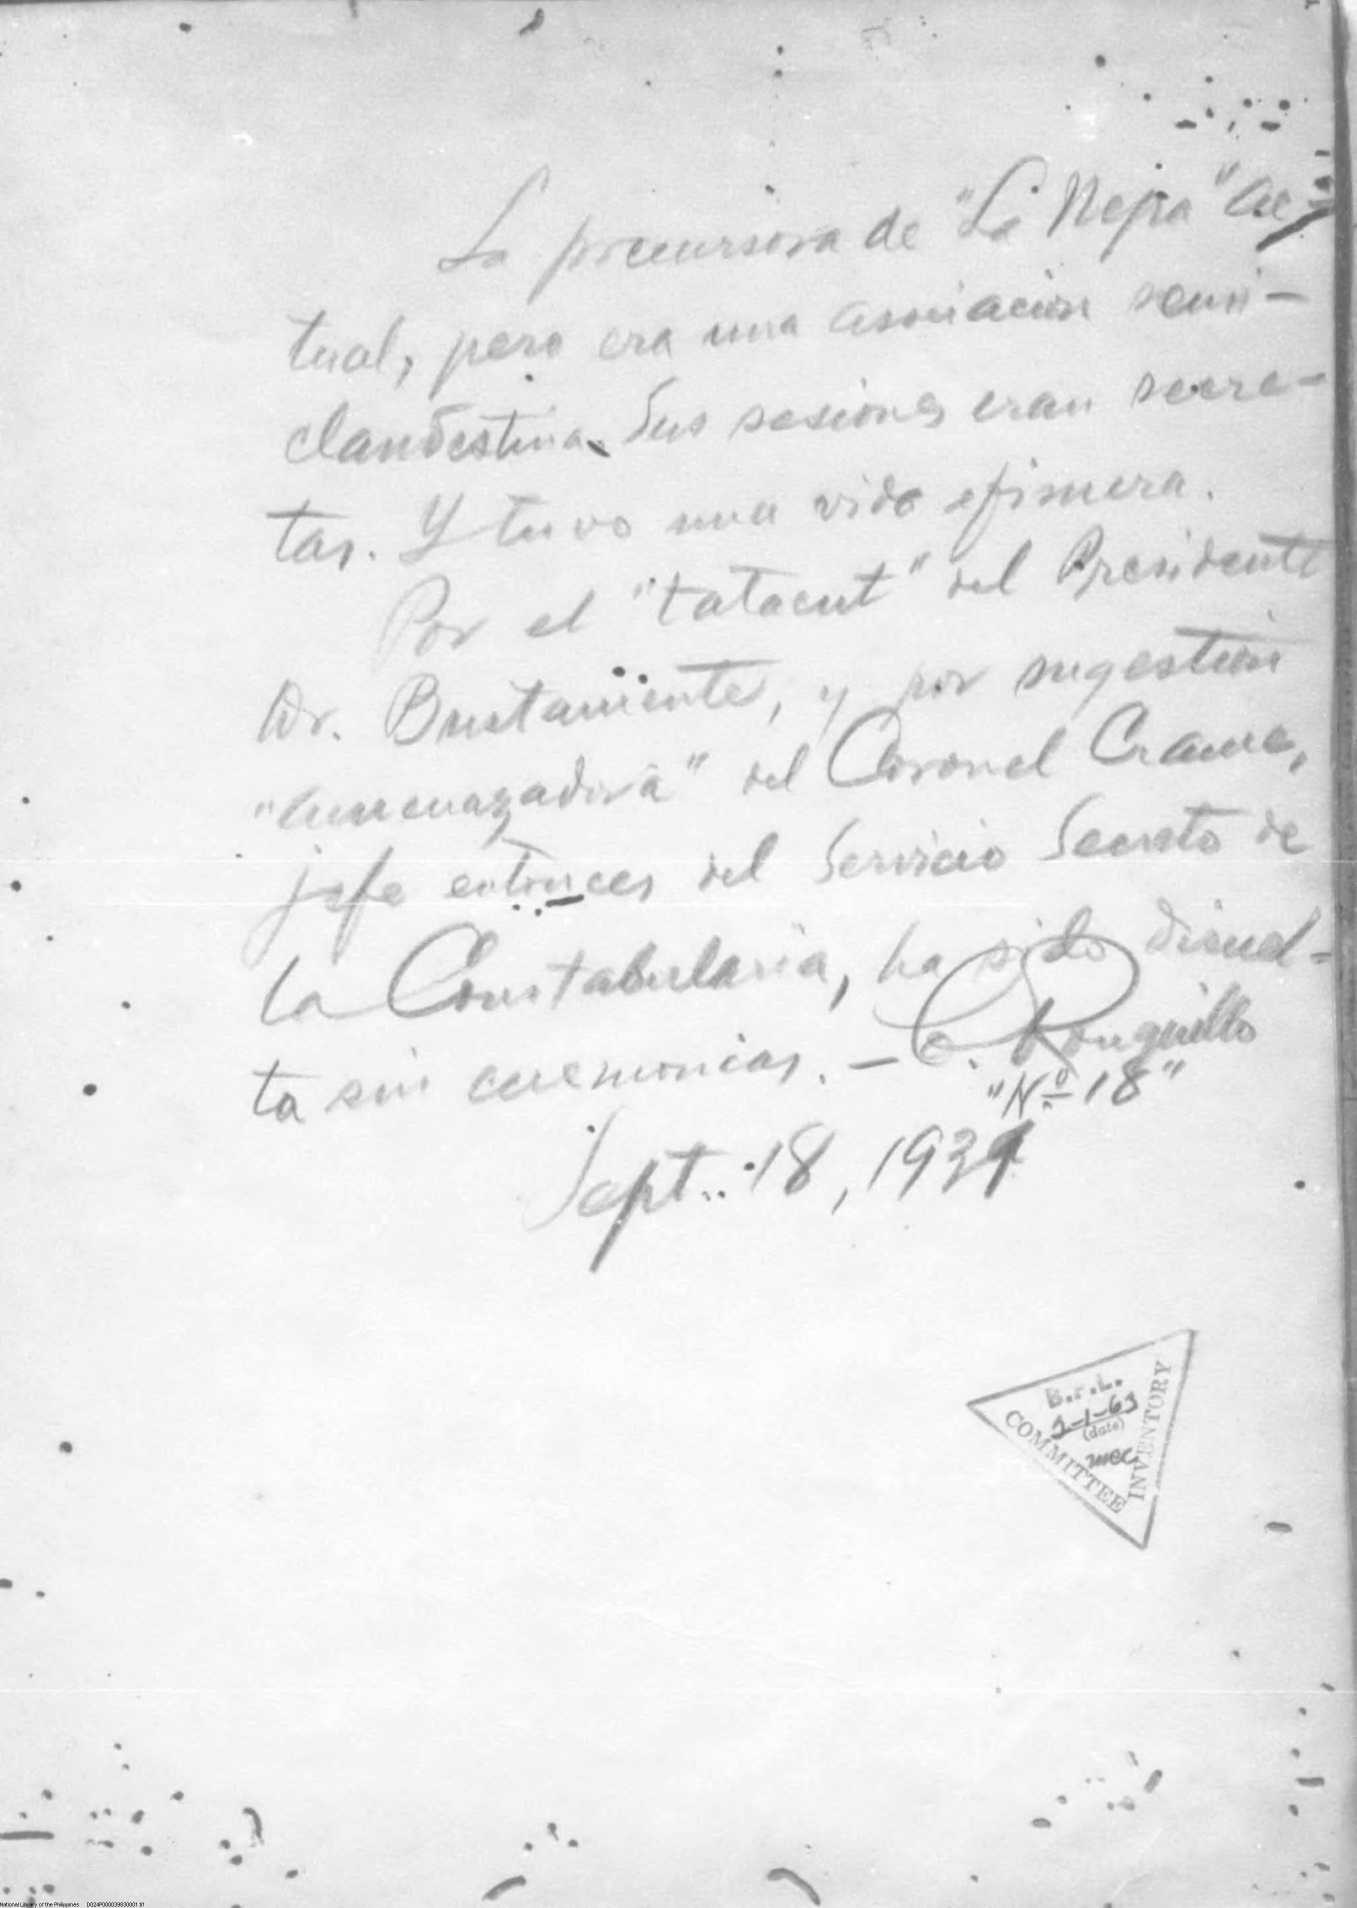 La precursora de "La Nepa" ac-
tual, pero era una asociación semi-
clandestina. Sus sesiones eran secre-
tas. Y tuvo una vida efimera.
Por el "tatacut" del Presidente
Dr. Bustamente, y por sugestión
"amenazadora" del Coronel Crame,
jefe entonces del Servicio Secreto de
la Constabularia, ha sido disuel-
ta sin ceremonias. — C. Ronquillo
"Nº 18"
Sept. 18, 1939
B.F.L.
2-1-63
(date)
mec
COMMITTEE
INVENTORY
National Library of the Philippines